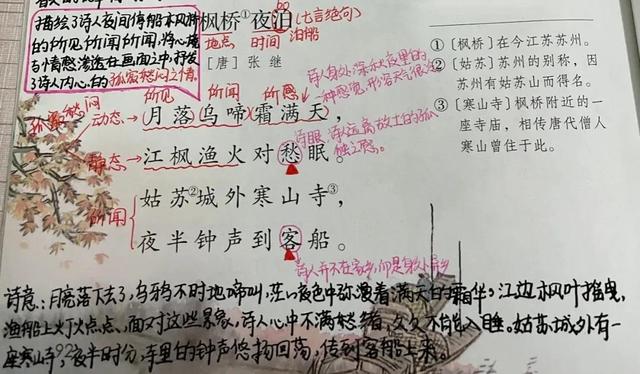 描绘了诗人夜间停船枫桥
的所见所闻所
与情感渗透在画面之中,抒发
了诗人内心的孤寂愁闷之情。
枫桥①夜泊(七言绝句)
bó
地点 时间 泊船
[唐]张继
孤寂愁闷
所见 所闻 所感
动态→月落乌啼霜满天,
静态→江枫渔火对愁眠。
所闻
姑苏②城外寒山寺③,
夜半钟声到客船。
诗人身处深秋夜里的
一种感觉,形容天气很冷
诗眼:诗人远离故土的孤
独之愁。
诗人并不在家乡,而是身处异乡
①〔枫桥〕在今江苏苏州。
②〔姑苏〕苏州的别称,因
苏州有姑苏山而得名。
③〔寒山寺〕枫桥附近的一
座寺庙,相传唐代僧人
寒山曾住于此。
诗意:月亮落下去了,乌鸦不时地啼叫,茫茫夜色中弥漫着满天的霜华,江边枫叶摇曳,
渔船上火丁火点点、面对这些景象,诗人心中不满愁绪,久久不能入睡。姑苏城外有一
座寒山寺,夜半时分,寺里的钟声悠扬回荡,传到客船上来。
92